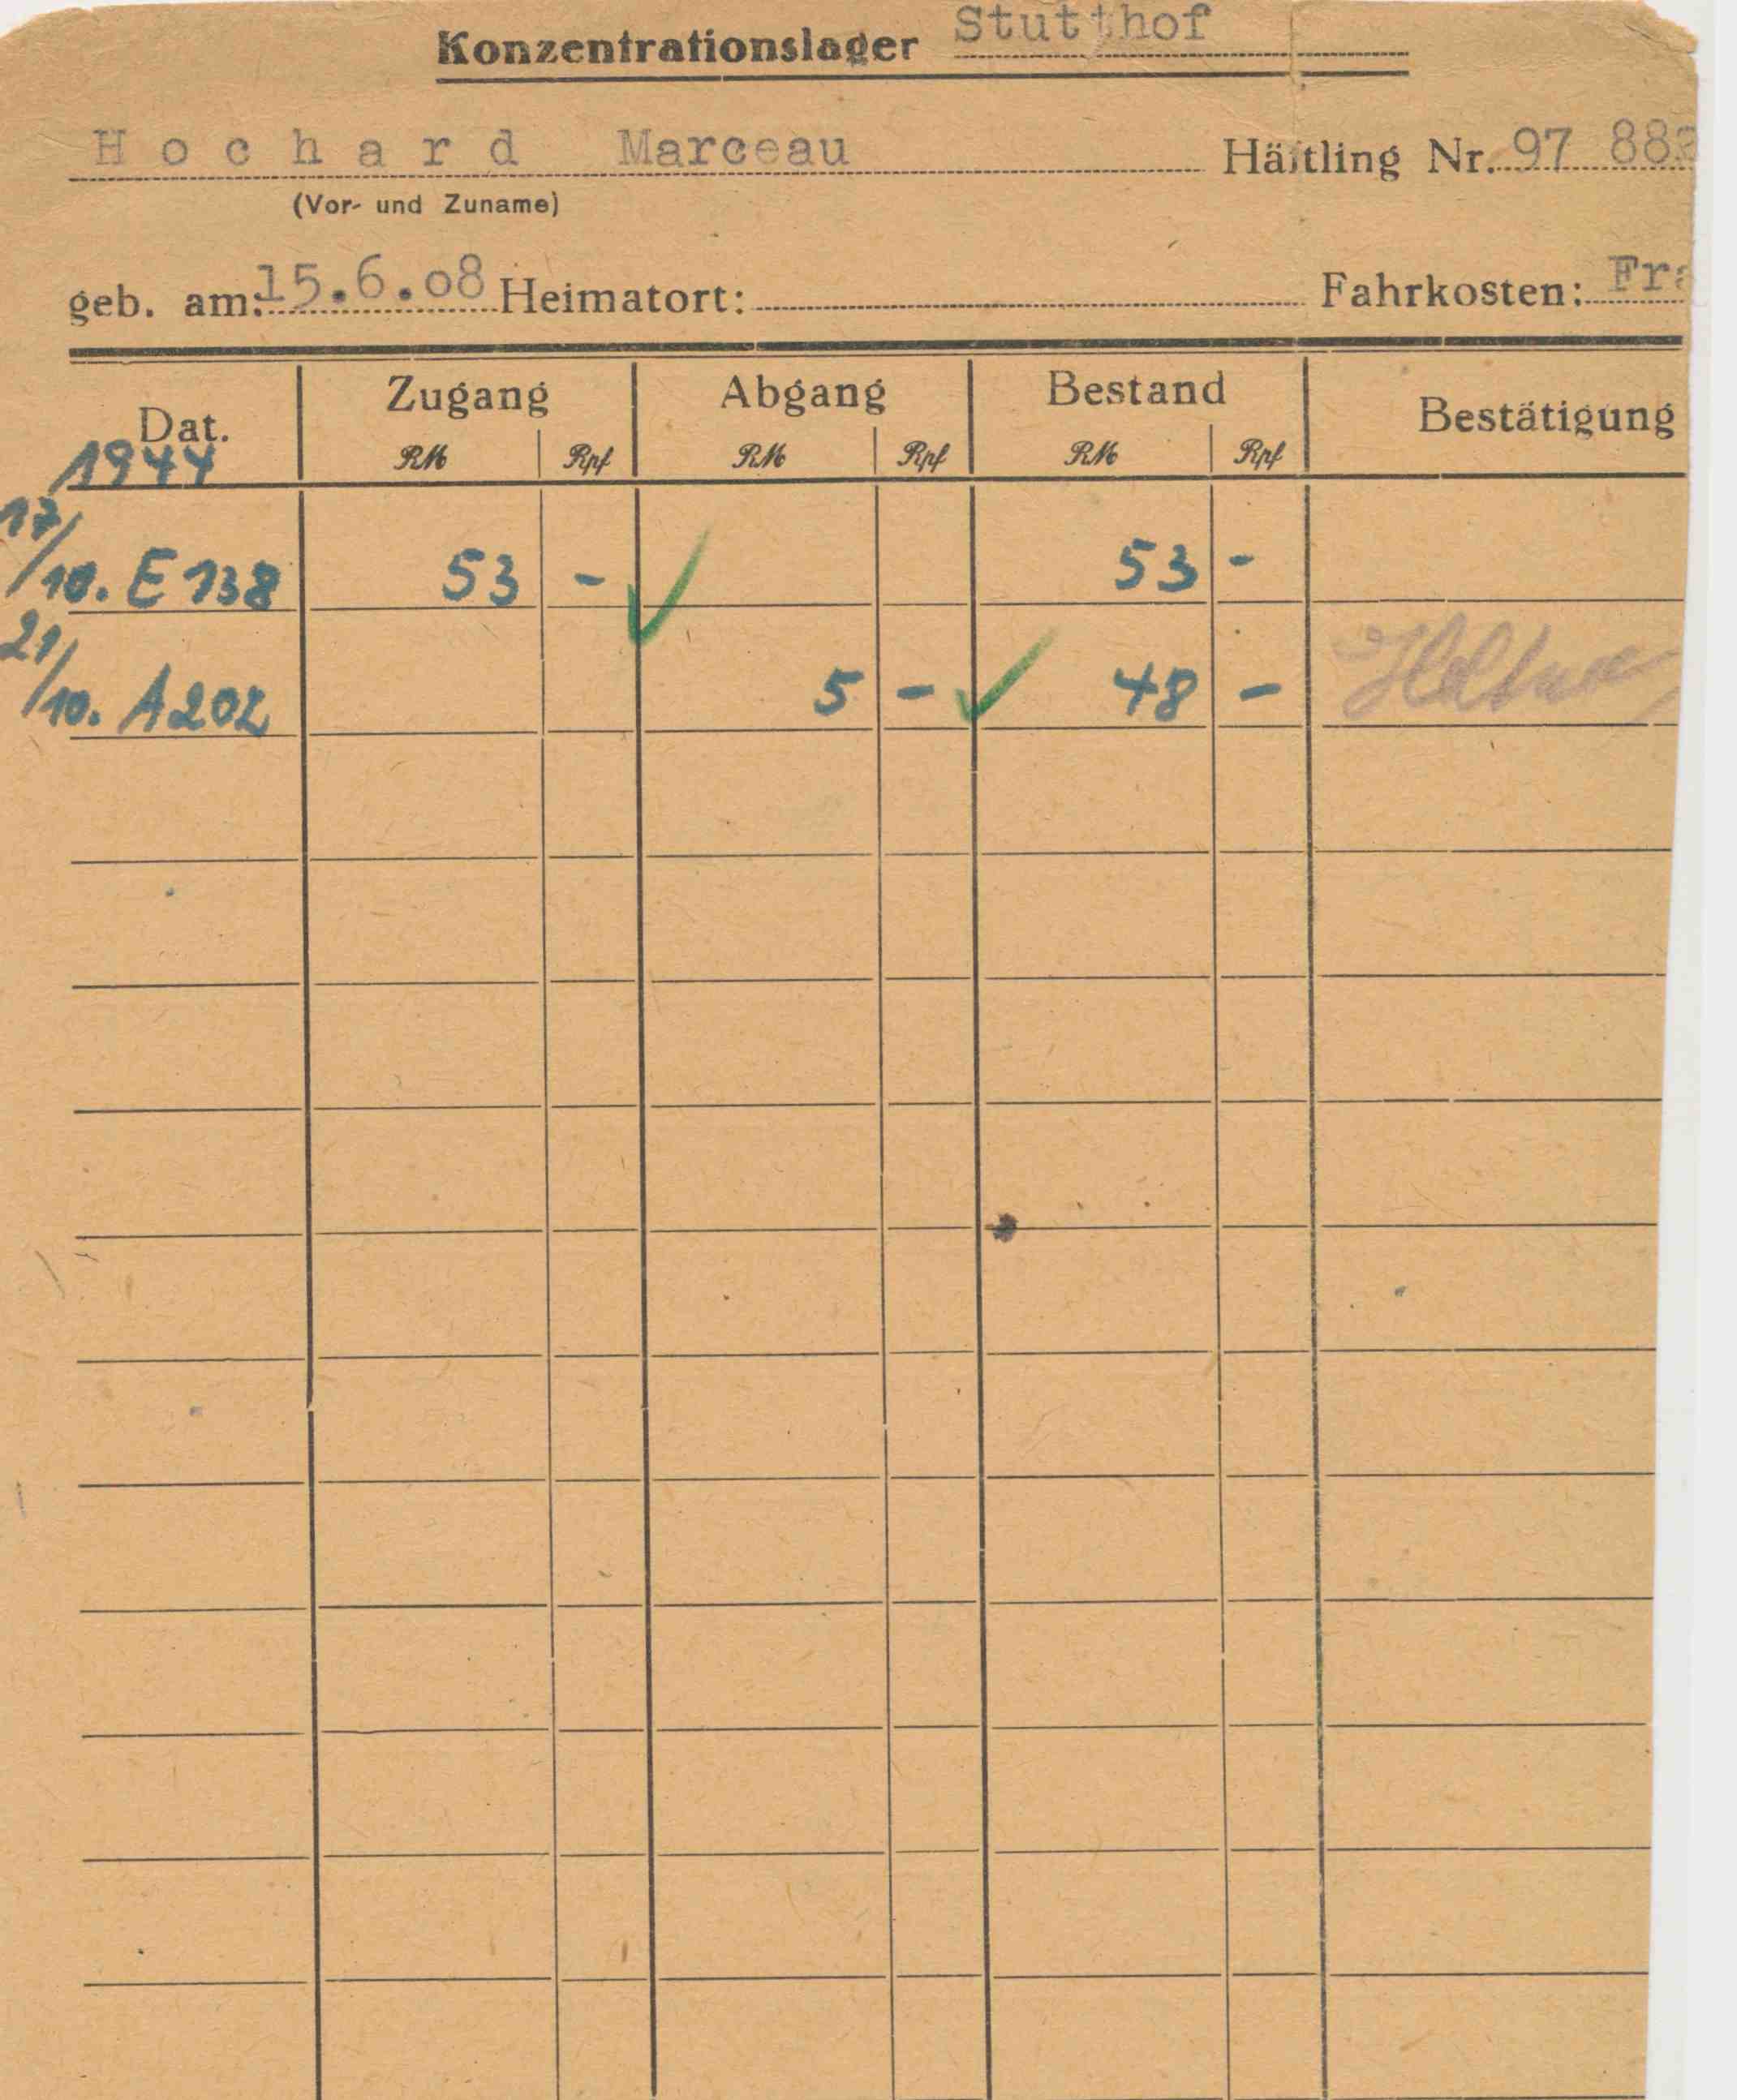 Konzentrationslager Stutthof
Hochard Marceau Häftling Nr. 97 88
(Vor- und Zuname)
geb. am: 15.6.08 Heimatort: Fahrkosten: Fra
Dat. Zugang Abgang Bestand Bestätigung
1944 RM Rpf RM Rpf RM Rpf
17/10. E 138 53 - 53 -
21/10. A 202 5 - 48 -